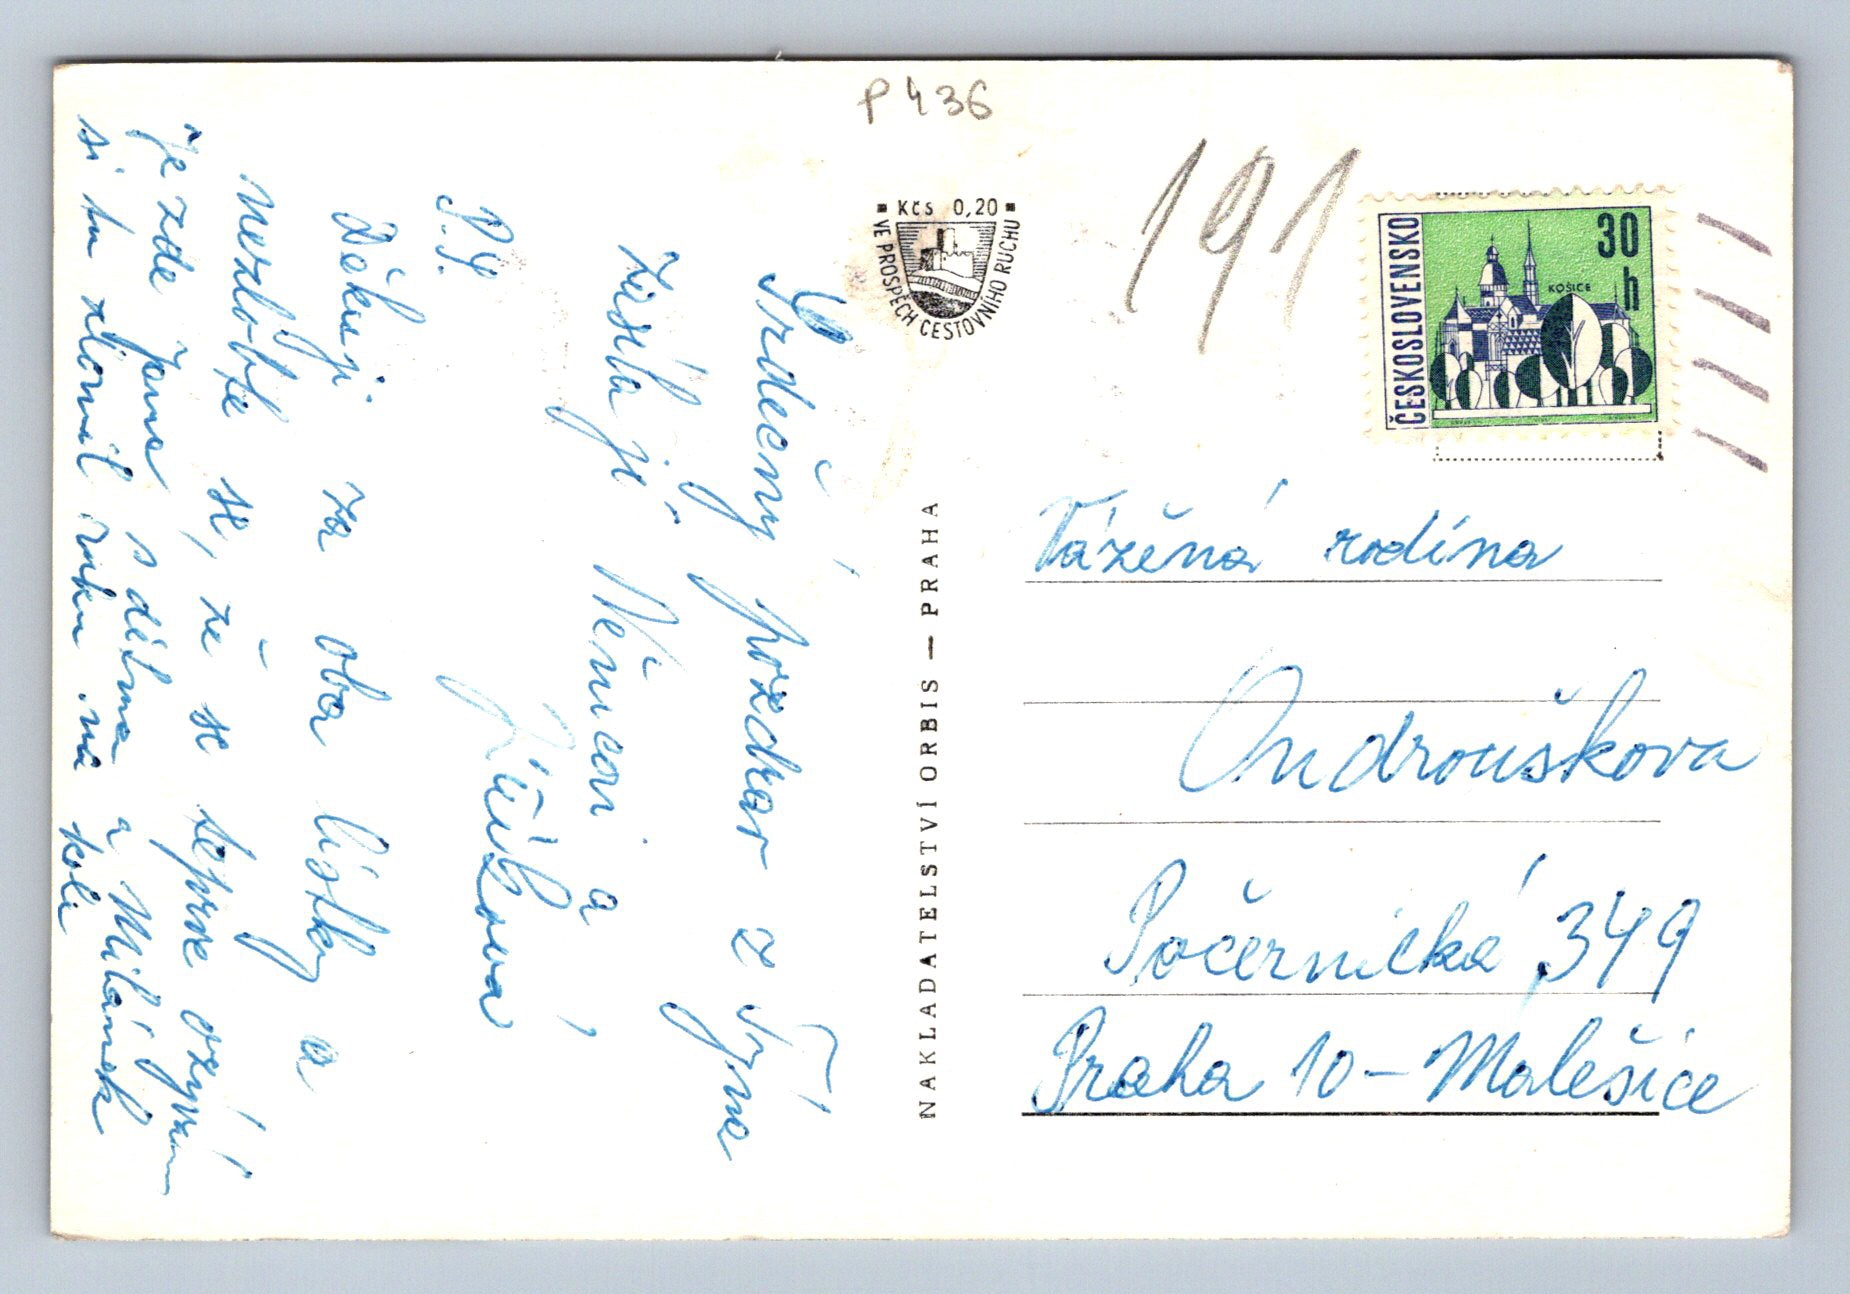 P 436
191
Kčs 0,20
VE PROSPĚCH CESTOVNÍHO RUCHU
ČESKOSLOVENSKO
30
h
KOŠICE
Srdečný pozdrav z Týna
zasílají Němcovi a
P.S.
Děkuji za oba lístky a
nezlobte se, že se teprve ozývám
je zde Jana s dětma a Milánek
si tu zlomil ruku na kole
NAKLADATELSTVÍ ORBIS — PRAHA
Vážená rodina
Ondrouškova
Počernická 349
Praha 10 - Malešice